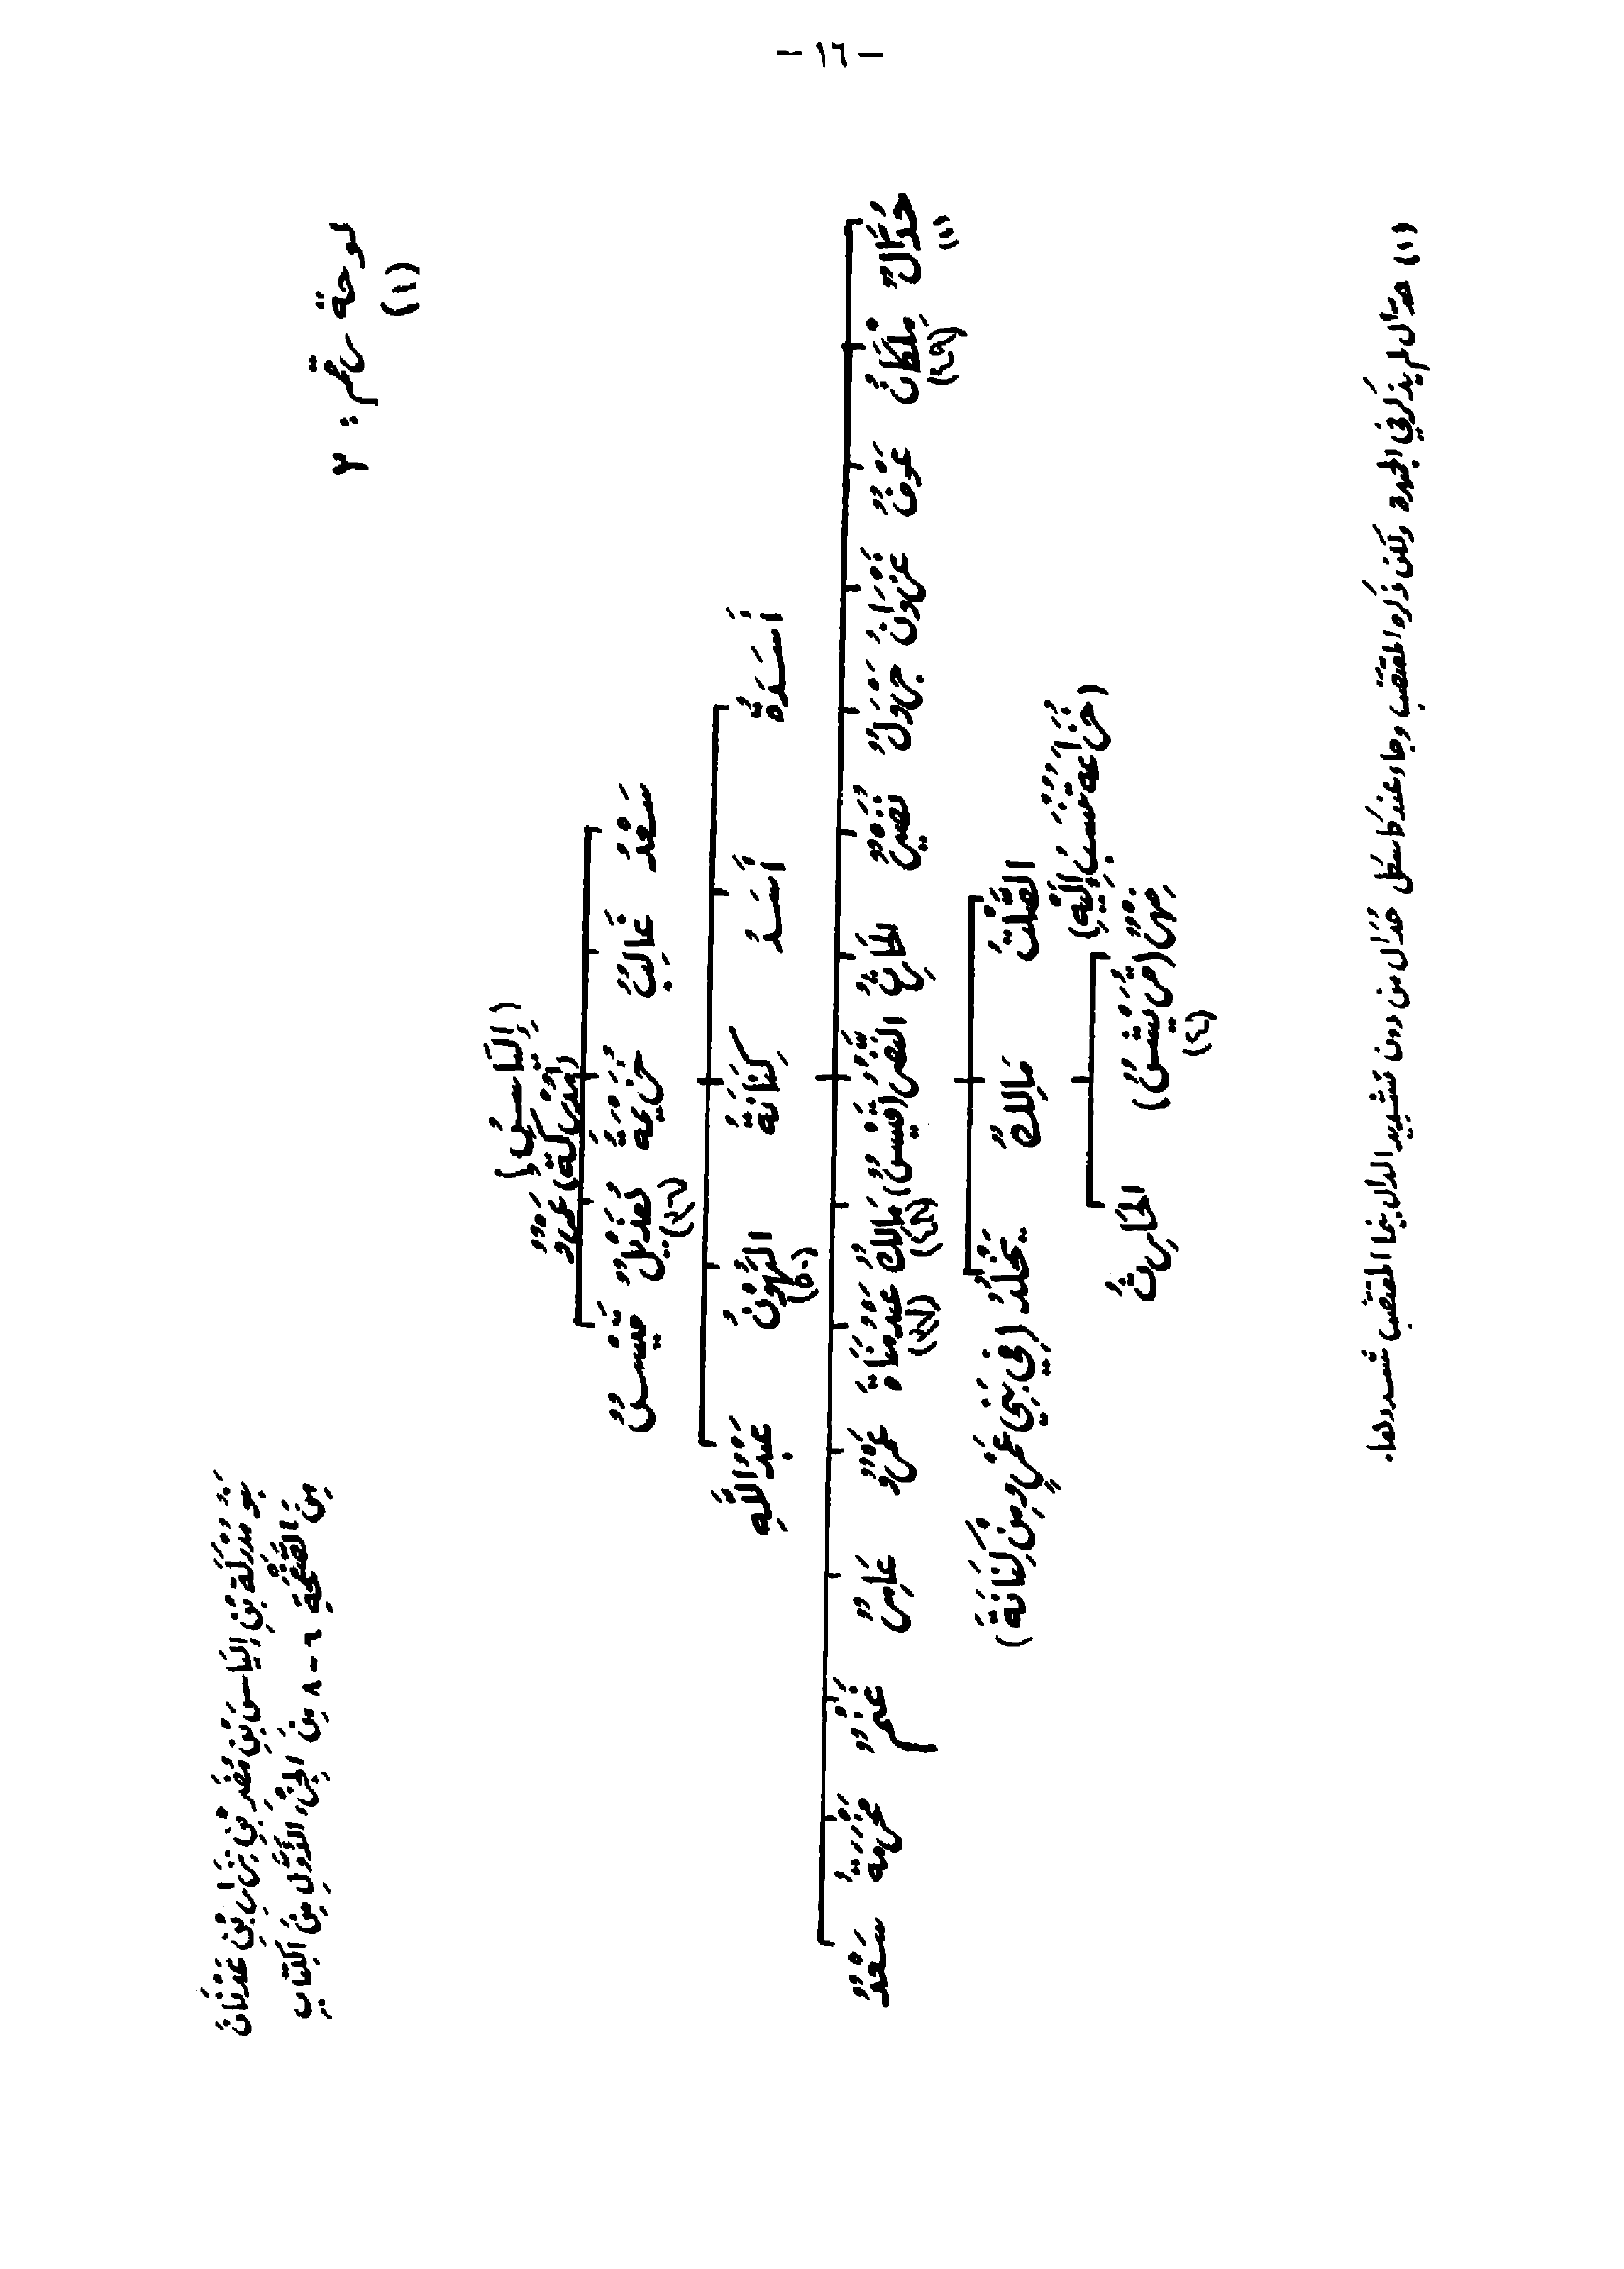 - ١٦ -
بَنُو مُدْرِكَةَ بْنِ إِلْيَاسَ بْنِ مُضَرَ بْنِ نِزَارِ بْنِ عَدْنَانَ
مِنَ الصَّفْحَةِ ٦ - ٨ مِنَ الجُزْءِ الأَوَّلِ مِنَ الكِتَابِ
لوحة رقم : ٣
(١)
(إِلْيَاسُ)
(مُدْرِكَةُ) عَمْرٌو
سَعْدُ
غَالِبٌ
خُزَيْمَةُ
هُذَيْلٌ
قَيْسٌ
أَسَدَةُ
أَسَدُ
كِنَانَةُ
الْهُونُ
(٥٠)
عَبْدُ اللَّهِ
حُدَالٌ
(١)
مِلْكَانُ
(٤٩)
عَوْفٌ
غَزْوَانُ
جَرْوَلٌ
نُضَيْرٌ
الحَارِثُ
النَّضْرُ (قَيْسٌ)
مَالِكٌ
(٤٨)
عَبْدُ مَنَاةَ
(٤٧)
عَمْرٌو
عَامِرٌ
غَنْمٌ
مَخْرَمَةُ
سَعْدٌ
الصَّلْتُ
(خُزَاعَةُ تُنْسَبُ إِلَيْهِ)
مَالِكٌ
يَخْلُدُ (فِي بَنِي عَمْرٍو مِنْ كِنَانَةَ)
فِهْرٌ (قُرَيْشٌ)
(٤)
الحَارِثُ
(١) حدّال لم يذكر في الجمهرة ولكن ذكره المقتضب وجاء عند كاسكل حُدَال من دون تشديد الدال بينما المقتضب شددها.